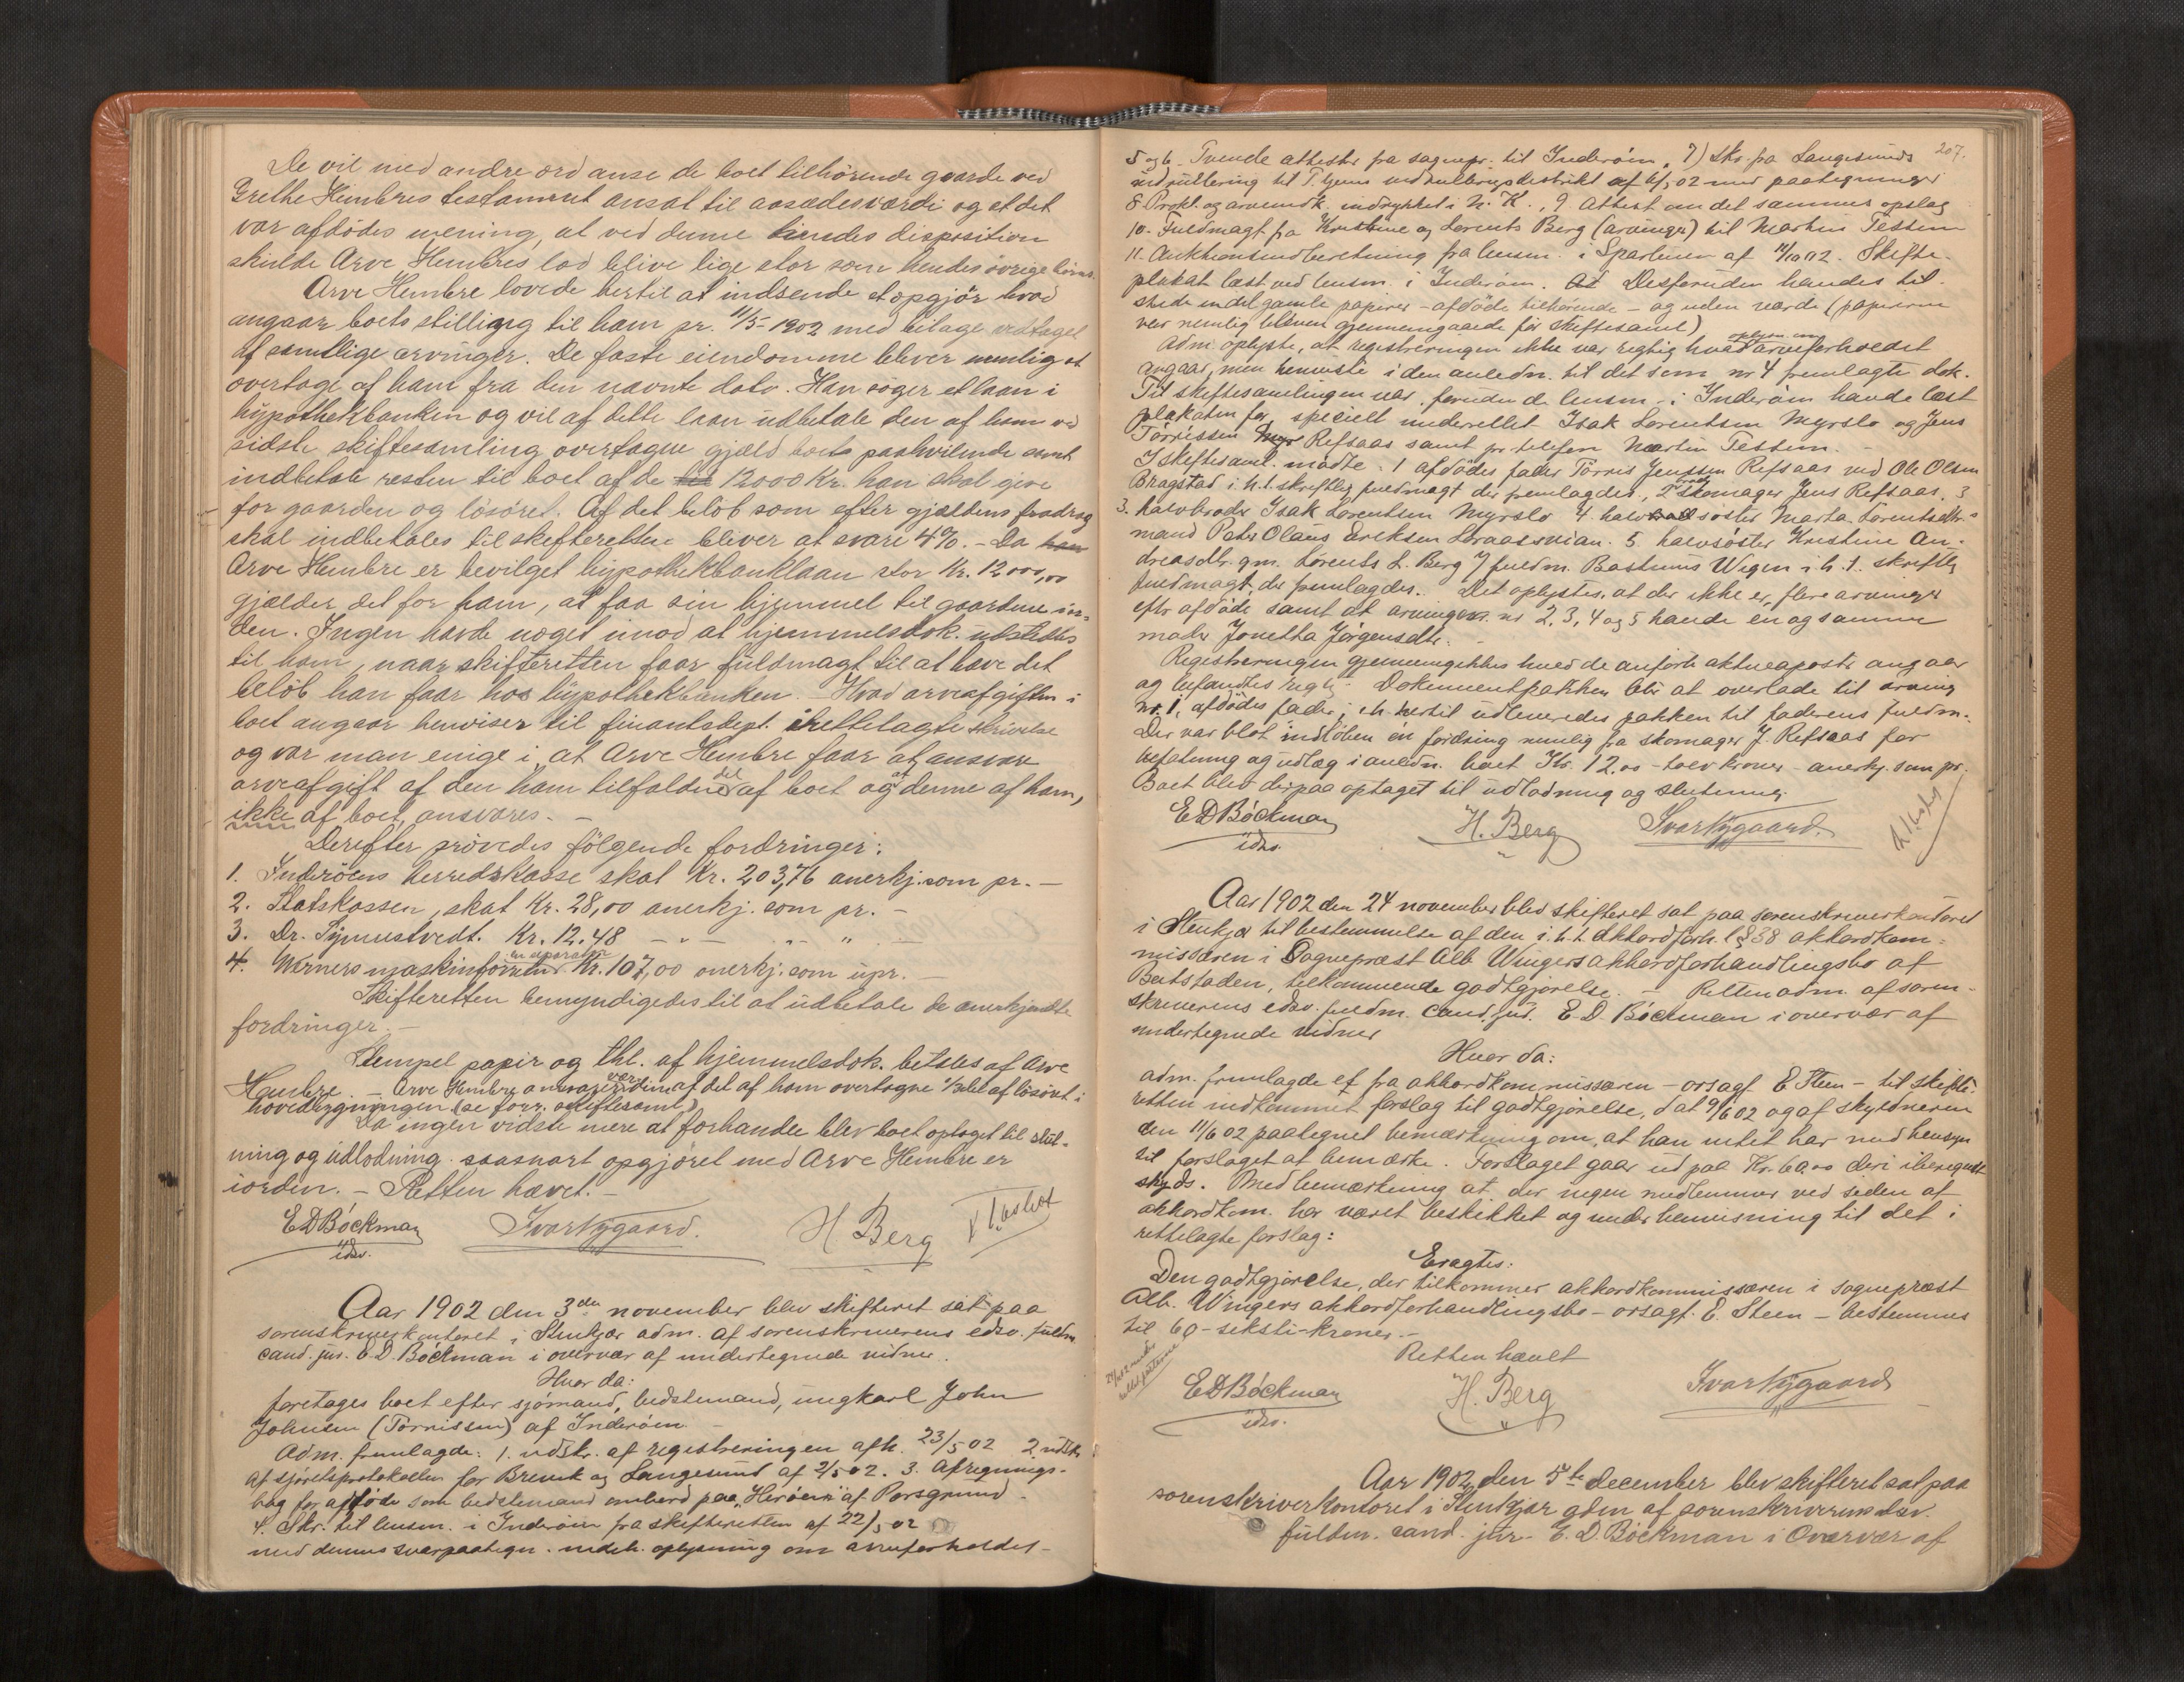 De vil med andre ord anse de boet tilhörende gaarde ved
Grethe Hembres testament ansat til aasædesværdi og at det
var afdödes mening, at ved denne hendes disposition
skulde Arve Hembres lod blive lige stor som hendes övrige börns.
Arve Hembre lovede hertil at indsende et opgjör hvad
angaar boets stilling til ham pr. 11/5 1902 med bilage vedtaget
af samtlige arvinger. De faste eiendomme blever nemlig at
overtage af ham fra den nævnte dato. Han söger et laan i
hypothekbanken og vil af dette laan udbetale den af ham ved
sidste skiftesamling overtagne gjæld boets paahvilende samt
indbetale resten til boet af de 12000 Kr. han skal give
for gaarden og lösöret. Af det belöb som efter gjældens fradrag
skal indbetales til skifteretten blever at svare 4%. - Da
Arve Hembre er bevilget hypothekbanklaan stor Kr. 12000,00
gjælder det for ham, at faa sin hjemmel til gaardene i or-
den. Ingen havde noget imod at hjemmelsdok. udstedes
til ham, naar skifteretten faar fuldmagt til at hæve det
belöb han faar hos hypothekbanken. Hvad arveafgiften i
boet angaar henviser til finantsdept. irettelagte skrivelse
og var man enige i, at Arve Hembre faar at ansvare
arveafgift af den ham tilfaldne del af boet og at denne af ham,
ikke af boet, ansvares. -
Derefter prövedes fölgende fordringer:
1. Inderöens herredskasse skat Kr. 203,76 anerkj. som pr. -
2. Statskassen, skat Kr. 28,00 anerkj. som pr. -
3. Dr. Kr. 12.48 - " - " - " -
4. Werners maskinforretn. en separator Kr. 107,00 anerkj. som upr. -
Skifteretten bemyndigedes til at udbetale de anerkjendte
fordringer. -
Stempel papir og thl. af hjemmelsdok. betales af Arve
Hembre. - Arve Hembre værdien af det af ham overtagne 1/2del af lösöret i
hovedbygningen (se forr. skiftesaml.)
Da ingen vidste mere at forhandle blev boet optaget til slut-
ning og udlodning saasnart opgjöret med Arve Hembre er
iorden. - Retten hævet. -
E D Böckman Ivar Nygaard. H Berg
edsv.
Aar 1902 den 3die november blev skifteret sat paa
sorenskriverkontoret i Stenkjær adm. af sorenskriverens edsv. fuldm.
cand. jur. E. D. Böckman i overvær af undertegnede vidner.
Hvor da:
foretages boet efter sjömand, bedstemand, ungkarl John
Johnsen (Torrissen) af Inderöen. -
Adm. fremlagde: 1. udskr. af registreringen afh. 23/5 02 2 udskr.
af sjöretsprotokollen for Brevik og Langesund af 2/5 02. 3. Afregnings-
bog for afdöde som bedstemand ombord paa "Heröen" af Porsgrund
4. Skr. til lensm. i Inderöen fra skifteretten af 22/5 02
med dennes svarpaategn. indeh. oplysning om arveforholdet -
207.
5 og 6. Tvende attester fra sognepr. til Inderöen, 7) Skr. fra Langesunds
indrullering til T.hjems indrulleringsdistrikt af 02 med paategninger
8. Prokl. og arveindk. indrykket i N. K., 9. Attest om det sammes opslag
10. Fuldmagt fra Kristine og Lorents Berg (arvinger) til Martin Testem
11. Auktionsindberetning fra lensm. i Sparbuen af 02. Skifte-
plakat læst ved lensm. i Inderöen. Desforuden havdes til-
stede endel gamle papirer - afdöde tilhörende - og uden værdi (papirerne
var nemlig bleven gjennemgaaede för skiftesaml.)
Adm. oplyste, at registreringen ikke var rigtig hvad oplysn. om arveforholdet
angaar, men henviste i den anledn. til det som nr 4 fremlagte dok.
Til skiftesamlingen var foruden de lensm. i Inderöen havde læst
plakaten for, specielt underrettet Isak Lorentsen Myrslo og Jens
Törrissen Refsaas samt pr. telefon Martin Testem. -
I skiftesaml. mödte: 1 afdödes fader Törris Jenssen Refsaas ved Ole Olsen
Bragstad i h.t. skriftlig fuldmagt der fremlagdes, 2 brod. skomager Jens Refsaas, 3
3. halvbroder Isak Lorentsen Myrslo 4 halvsöster Marta Lorentsdtr.s
mand Peter Olaus Eriksen 5. halvsöster Kristine An-
dreasdtr. gm. Lorents L. Berg f fuldm. Bastinus Wigen i h. t. skriftlig
fuldmagt, der fremlagdes. Det oplystes, at der ikke er flere arvinger
efter afdöde samt at arvingerne nr 2, 3, 4 og 5 havde en og samme
moder Jonetha Jörgensdtr.
Registreringen gjennemgikkes hvad de anförte aktivaposter angaar
og befandtes rigtig. Dokumentpakken blir at overlade til arving
nr. 1, afdödes fader; i h. hertil udleveredes pakken til faderens fuldm.
Der var blot indlöben én fordring nemlig fra skomager J. Refsaas for
befatning og udlæg i anledn. boet Kr. 12.00 - tolv kroner - anerkj. som pr.
Boet blev derpaa optaget til udlodning og slutning
E D Böckman H. Berg Ivar Nygaard.
edsv.
Aar 1902 den 24 november blev skifteret sat paa sorenskriverkontoret
i Stenkjær til bestemmelse af den i. h. t. akkordforh. l § 38 akkordkom-
missæren i Sognepræst Alb. Wingers akkordforhandlingsbo af
Beitstaden, tilkommende godtgjörelse. - Retten adm. af soren-
skriverens edsv. fuldm. cand. jur. E. D. Böckman i overvær af
undertegnede vidner
Hvor da:
adm. fremlagde et fra akkordkommissæren - orsagf. E Steen - til skifte-
retten indkommet forslag til godtgjörelse, dat 9/6 02 og af skyldneren
den 11/6 02 paategnet bemærkning om, at han intet har med hensyn
til forslaget at bemærke. Forslaget gaar ud paa Kr. 60.00 deri iberegnet
skyds. Med bemærkning at der ingen medlemmer ved siden af
akkordkom. har været beskikket og under henvisning til det i
rettelagte forslag:
Eragtes:
Den godtgjörelse, der tilkommer akkordkommissæren i sognepræst
Alb. Wingers akkordforhandlingsbo - orsagf. E. Steen - bestemmes
til 60 - seksti - kroner. -
Retten hævet
E D Böckman H. Berg Ivar Nygaard
edsv.
Aar 1902 den 5te december blev skifteret sat paa
sorenskriverkontoret i Stenkjær adm af sorenskriverens edsv.
fuldm. cand. jur. E. D. Böckman i Overvær af